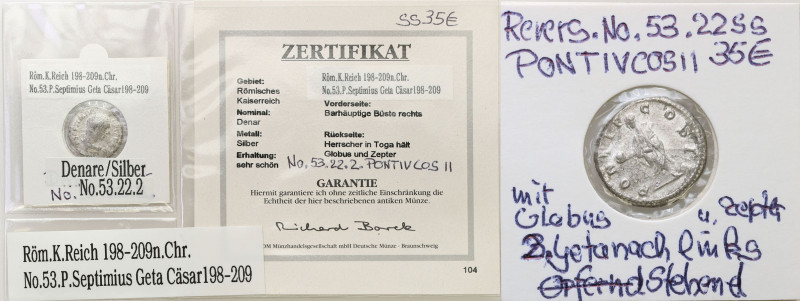 Röm.K.Reich 198-209n.Chr.
No.53.P.Septimius Geta Cäsar198-209
Denare/Silber
Nö. No.53.22.2
Röm.K.Reich 198-209n.Chr.
No.53.P.Septimius Geta Cäsar198-209
SS 35€
ZERTIFIKAT
Gebiet:
Römisches
Kaiserreich
Röm.K.Reich 198-209n.Chr.
No.53.P.Septimius Geta Cäsar198-209
Nominal:
Denar
Vorderseite:
Barhäuptige Büste rechts
Metall:
Silber
Rückseite:
Herrscher in Toga hält
Globus und Zepter
Erhaltung:
sehr schön
No.53.22.2.PONTIVCOS II
GARANTIE
Hiermit garantiere ich ohne zeitliche Einschränkung die
Echtheit der hier beschriebenen antiken Münze.
Richard Borek
MDM Münzhandelsgesellschaft mbH Deutsche Münze · Braunschweig
104
Revers.No.53.22SS
PONTIVCOSII 35€
PONTIF COS II
mit
Globus u. Zepter
2.Getanach links
opfernd Stehend